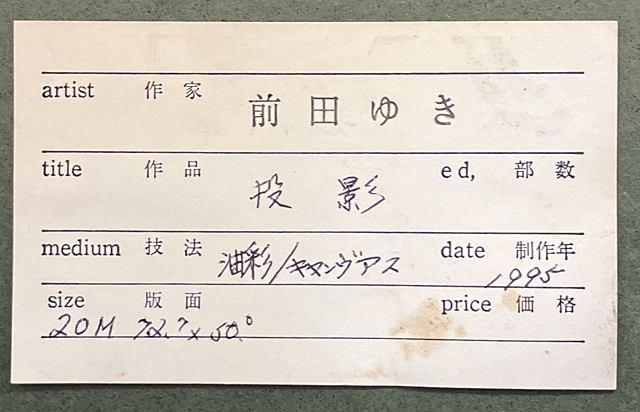 artist 作家 前田ゆき
title 作品 投影 ed, 部数
medium 技法 油彩/キャンヴアス date 制作年 1995
size 版面 price 価格
20M 72.7×50.0